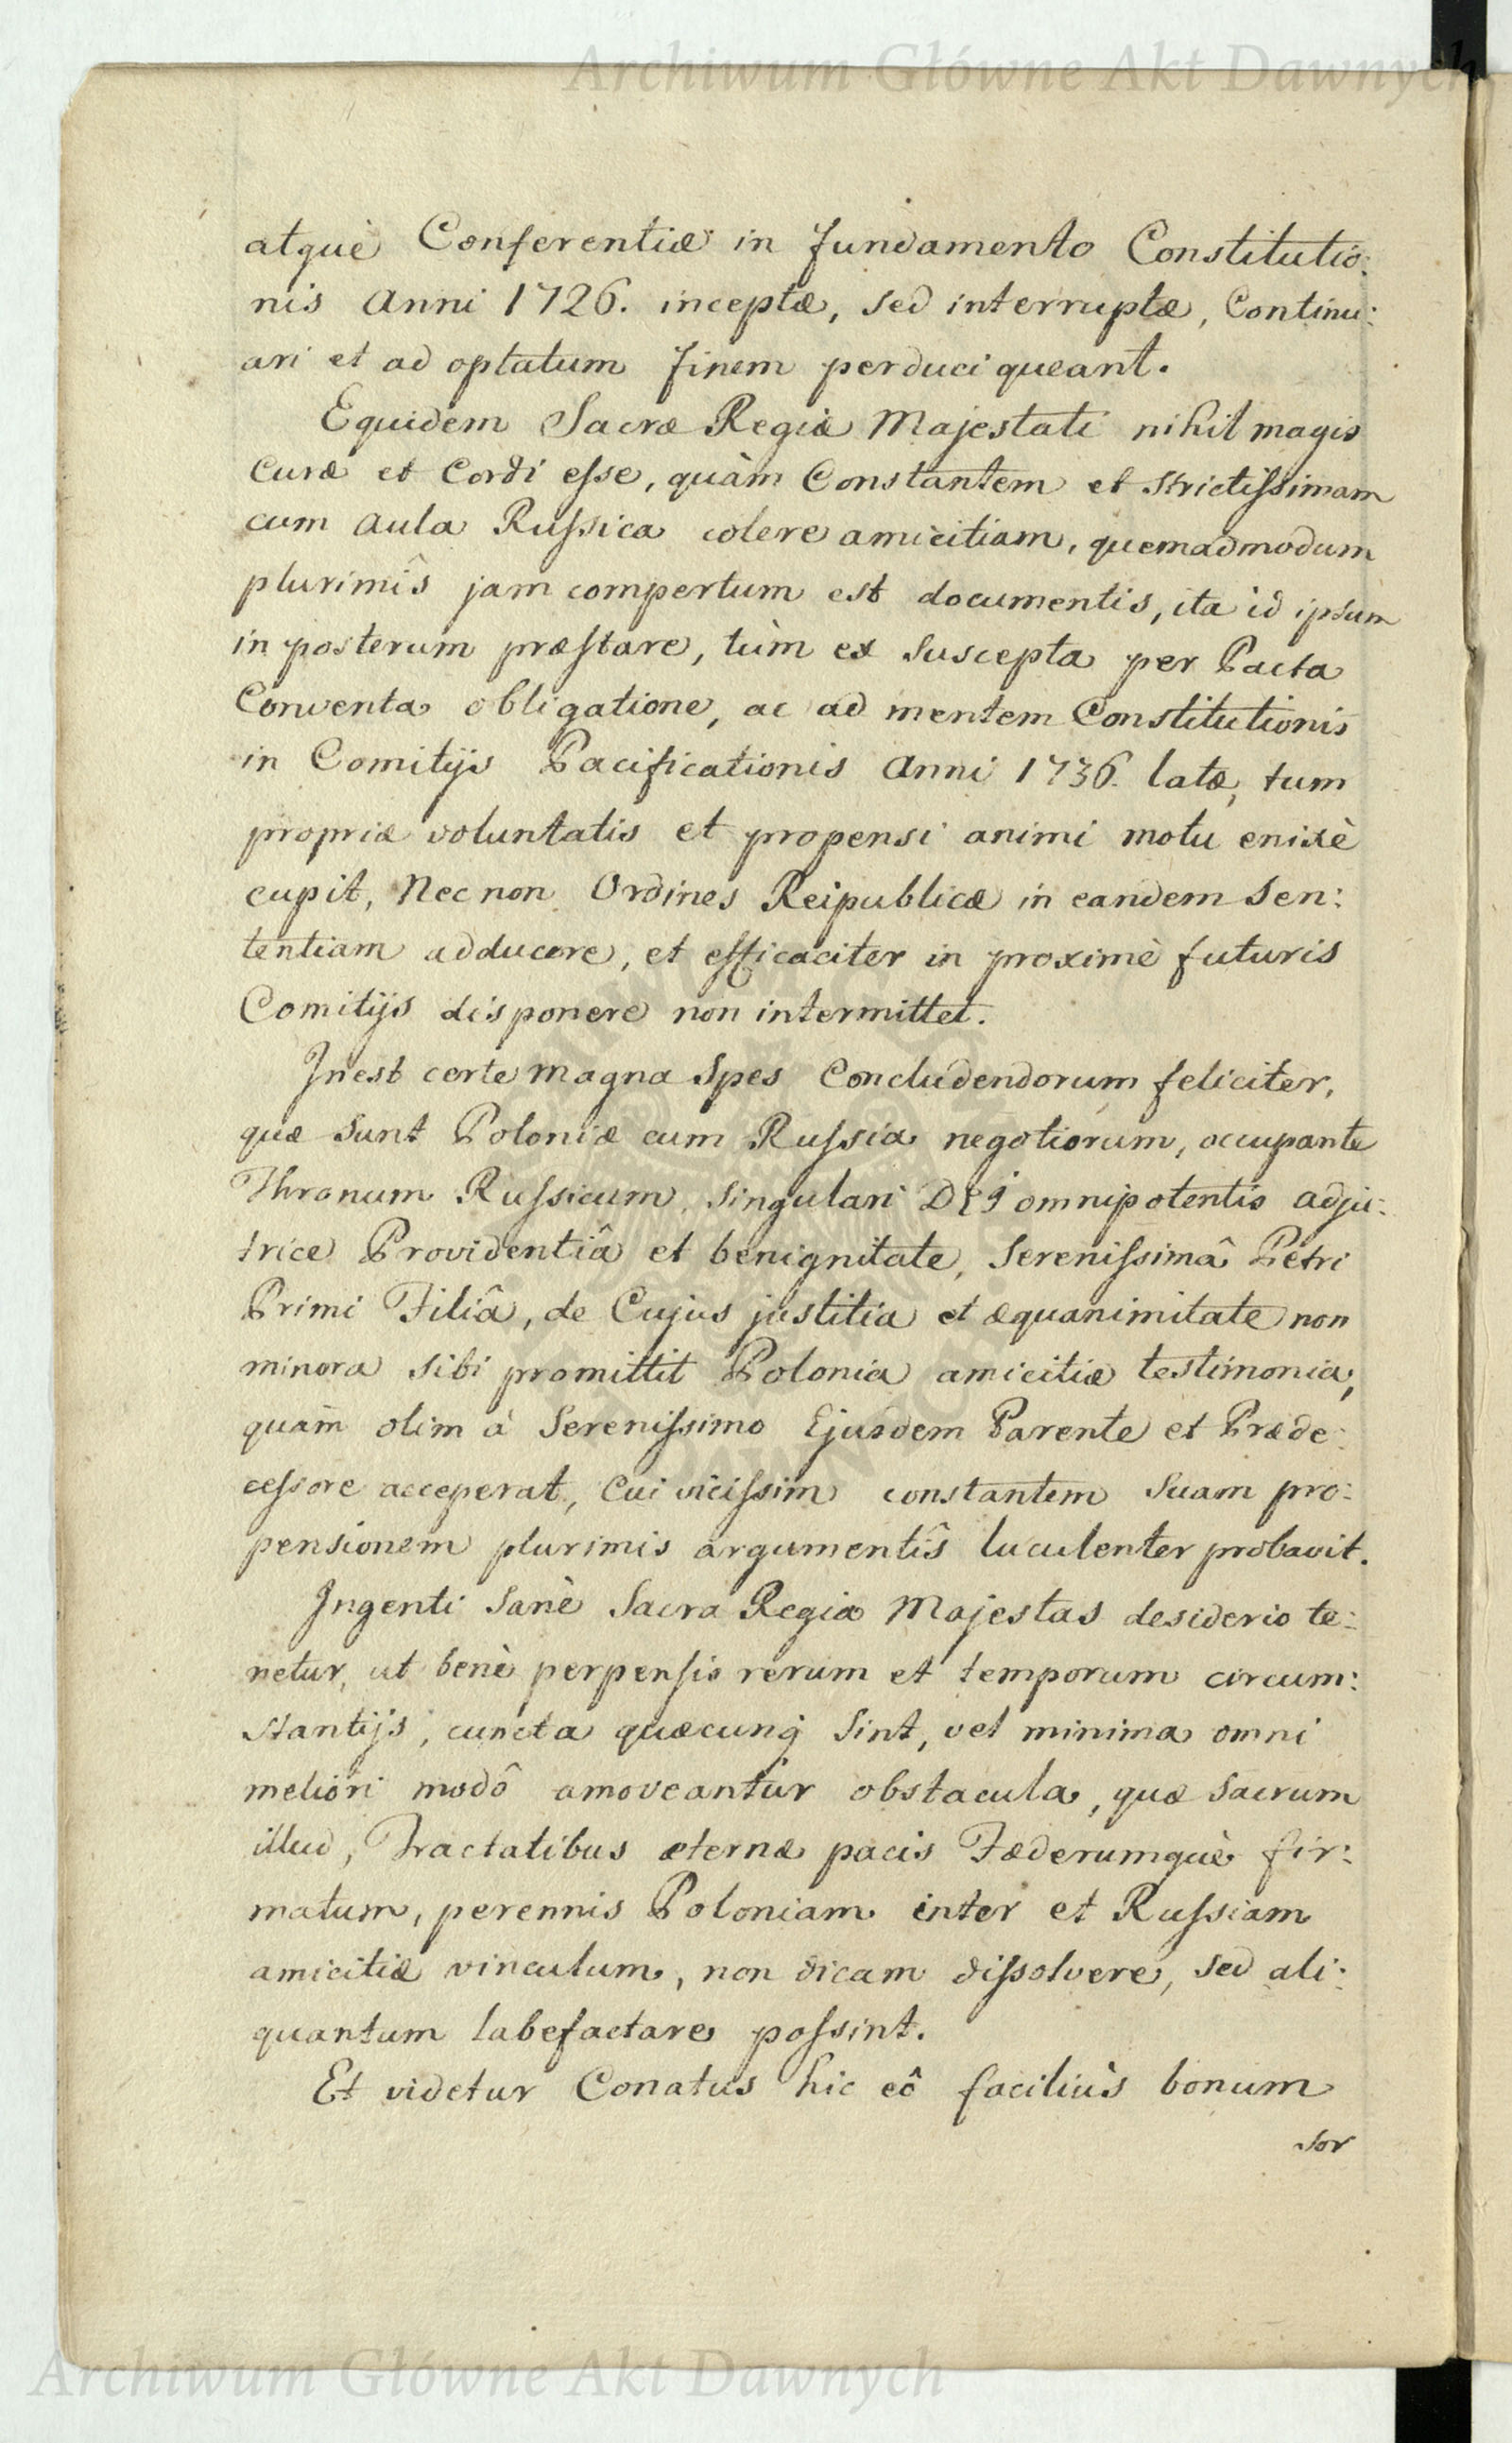 Archiwum Główne Akt Dawnych
atquè Conferentiæ in fundamento Constitutio:
nis Anni 1726. inceptæ, sed interruptæ, Continu:
ari et ad optatum finem perduci queant.
Equidem Sacræ Regiæ Majestati nihil magis
Curæ et Cordi eſse, quàm Constantem et strictiſsimam
cum Aula Ruſsica colere amicitiam, quemadmodum
plurimîs jam compertum est documentis, ita id ipsum
in posterum præſtare, tùm ex suscepta per Pacta
Conventa obligatione, ac ad mentem Constitutionis
in Comitijs Pacificationis Anni 1736. latæ, tum
propriæ voluntatis et propensi animi motu enixè
cupit, Nec non Ordines Reipublicæ in eandem sen:
tentiam adducere, et efficaciter in proximè futuris
Comitijs disponere non intermittet.
Inest certe magna Spes Concludendorum feliciter,
quæ sunt Poloniæ cum Ruſsia negotiorum, occupante
Thronum Ruſsicum, singulari DEI omnipotentis adju:
trice Providentiâ et benignitate, Sereniſsimâ Petri
Primi Filiâ, de Cujus justitia et æquanimitate non
minora sibi promittit Polonia amicitiæ testimonia,
quàm olim à Sereniſsimo Ejusdem Parente et Præde:
ceſsore acceperat, Cui viciſsim constantem suam pro:
pensionem plurimis argumentîs luculenter probavit.
Ingenti sanè Sacra Regia Majestas desiderio te:
netur, ut benè perpenſis rerum et temporum circum:
stantijs, cuncta quæcunq sint, vel minima omni
meliori modô amoveantur obstacula, quæ sacrum
illud, Tractatibus æternæ pacis Fæderumquè fir:
matum, perennis Poloniam inter et Ruſsiam
amicitiæ vinculum, non dicam diſsolvere, sed ali:
quantum labefactare poſsint.
Et videtur Conatus hic eô faciliùs bonum
sor
Archiwum Główne Akt Dawnych